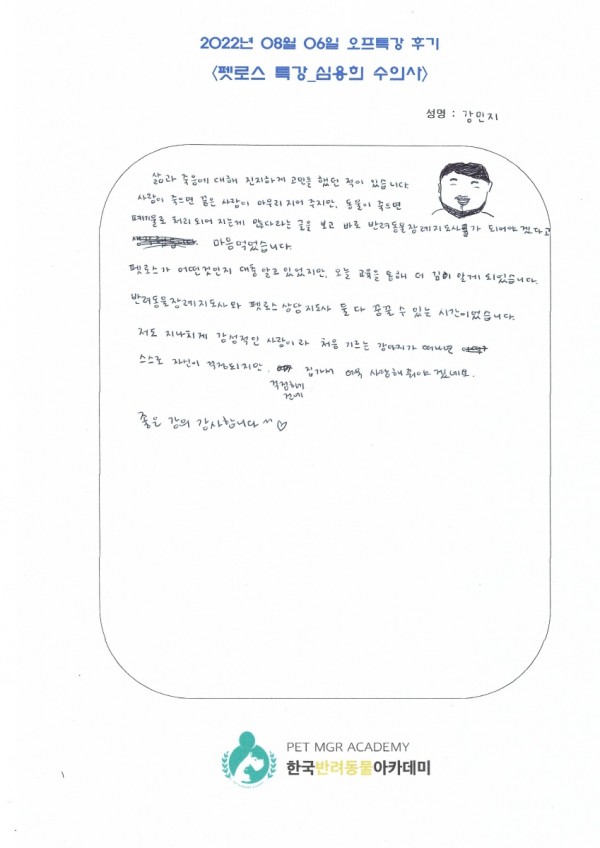 2022년 08월 06일 오프특강 후기
<펫로스 특강_심용희 수의사>
성명 : 강민지
삶과 죽음에 대해 진지하게 고민을 했던 적이 있습니다
사람이 죽으면 끝은 사람이 마무리 지어 주지만, 동물이 죽으면
폐기물로 처리되어 지는게 많다라는 글을 보고 바로 반려동물장례지도사가 되어야겠다고
마음먹었습니다.
펫로스가 어떤것인지 대충 알고 있었지만, 오늘 교육을 통해 더 깊이 알게 되었습니다.
반려동물장례지도사와 펫로스 상담지도사 둘 다 꿈꿀 수 있는 시간이었습니다.
저도 지나치게 감성적인 사람이라 처음 기르는 강아지가 떠나면
스스로 자신이 걱정되지만, 집가서 사랑해 줘야 겠네요.
걱정하기
전에
좋은 강의 감사합니다 ^^ ♡
PET MGR ACADEMY
한국반려동물아카데미